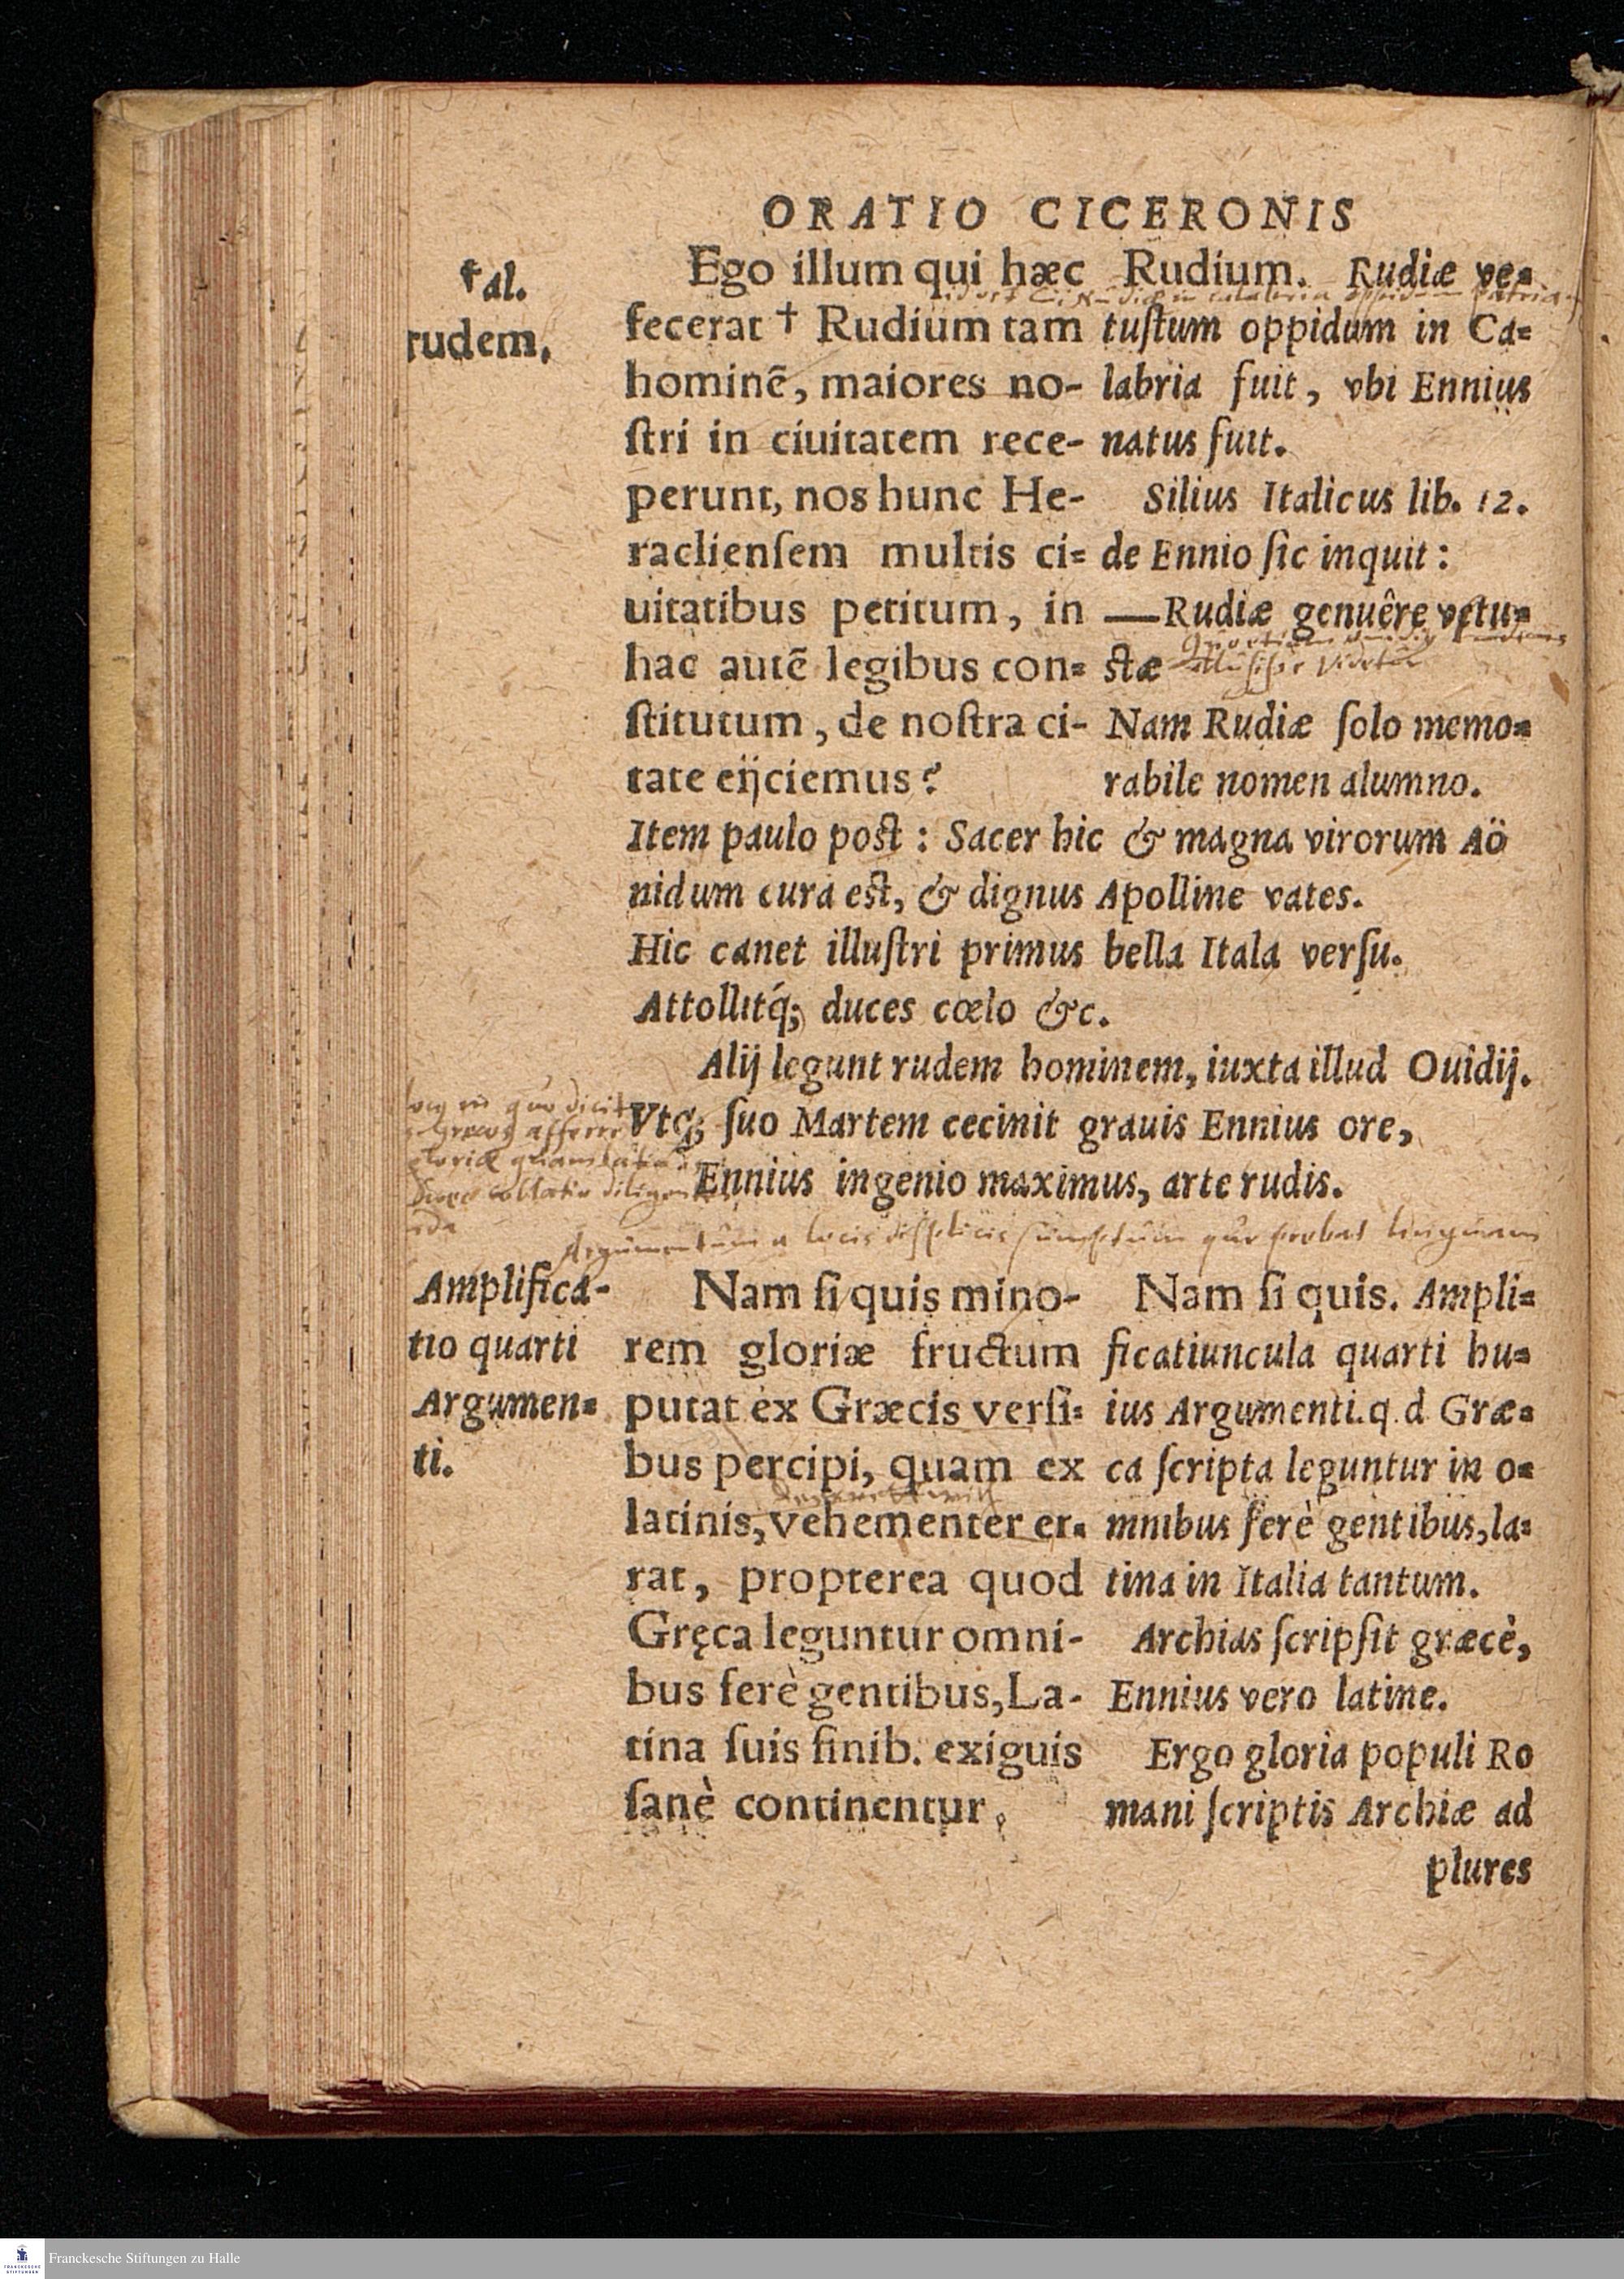 ORATIO CICERONIS
†al.
rudem,
Ego illum qui hæc
fecerat † Rudium tam
hominē, maiores no-
ſtri in ciuitatem rece-
perunt, nos hunc He-
raclienſem multis ci-
uitatibus petitum, in
hac autē legibus con-
ſtitutum, de noſtra ci-
tate eijciemus?
Rudium. Rudiæ ve-
tuſtum oppidum in Ca-
labria fuit, vbi Ennius
natus fuit.
Silius Italicus lib. 12.
de Ennio ſic inquit:
—Rudiæ genuêre vetu-
ſtæ
Nam Rudiæ ſolo memo-
rabile nomen alumno.
Item paulo poſt: Sacer hic & magna virorum Aö
nidum cura eſt, & dignus Apolline vates.
Hic canet illuſtri primus bella Itala verſu.
Attollitq́; duces cœlo &c.
Alij legunt rudem hominem, iuxta illud Ouidij.
Vtq; ſuo Martem cecinit grauis Ennius ore,
Ennius ingenio maximus, arte rudis.
Argumentum a locis sumptum linguam
Amplifica-
tio quarti
Argumen-
ti.
Nam ſi quis mino-
rem gloriæ fructum
putat ex Græcis verſi-
bus percipi, quam ex
latinis, vehementer er-
rat, propterea quod
Gręca leguntur omni-
bus ferè gentibus, La-
tina ſuis finib. exiguis
ſanè continentur.
Nam ſi quis. Ampli-
ficatiuncula quarti hu-
ius Argumenti. q. d. Græ-
ca ſcripta leguntur in o-
mnibus ferè gentibus, la-
tina in Italia tantum.
Archias ſcripſit græcè,
Ennius vero latine.
Ergo gloria populi Ro
mani ſcriptis Archiæ ad
plures
Franckesche Stiftungen zu Halle